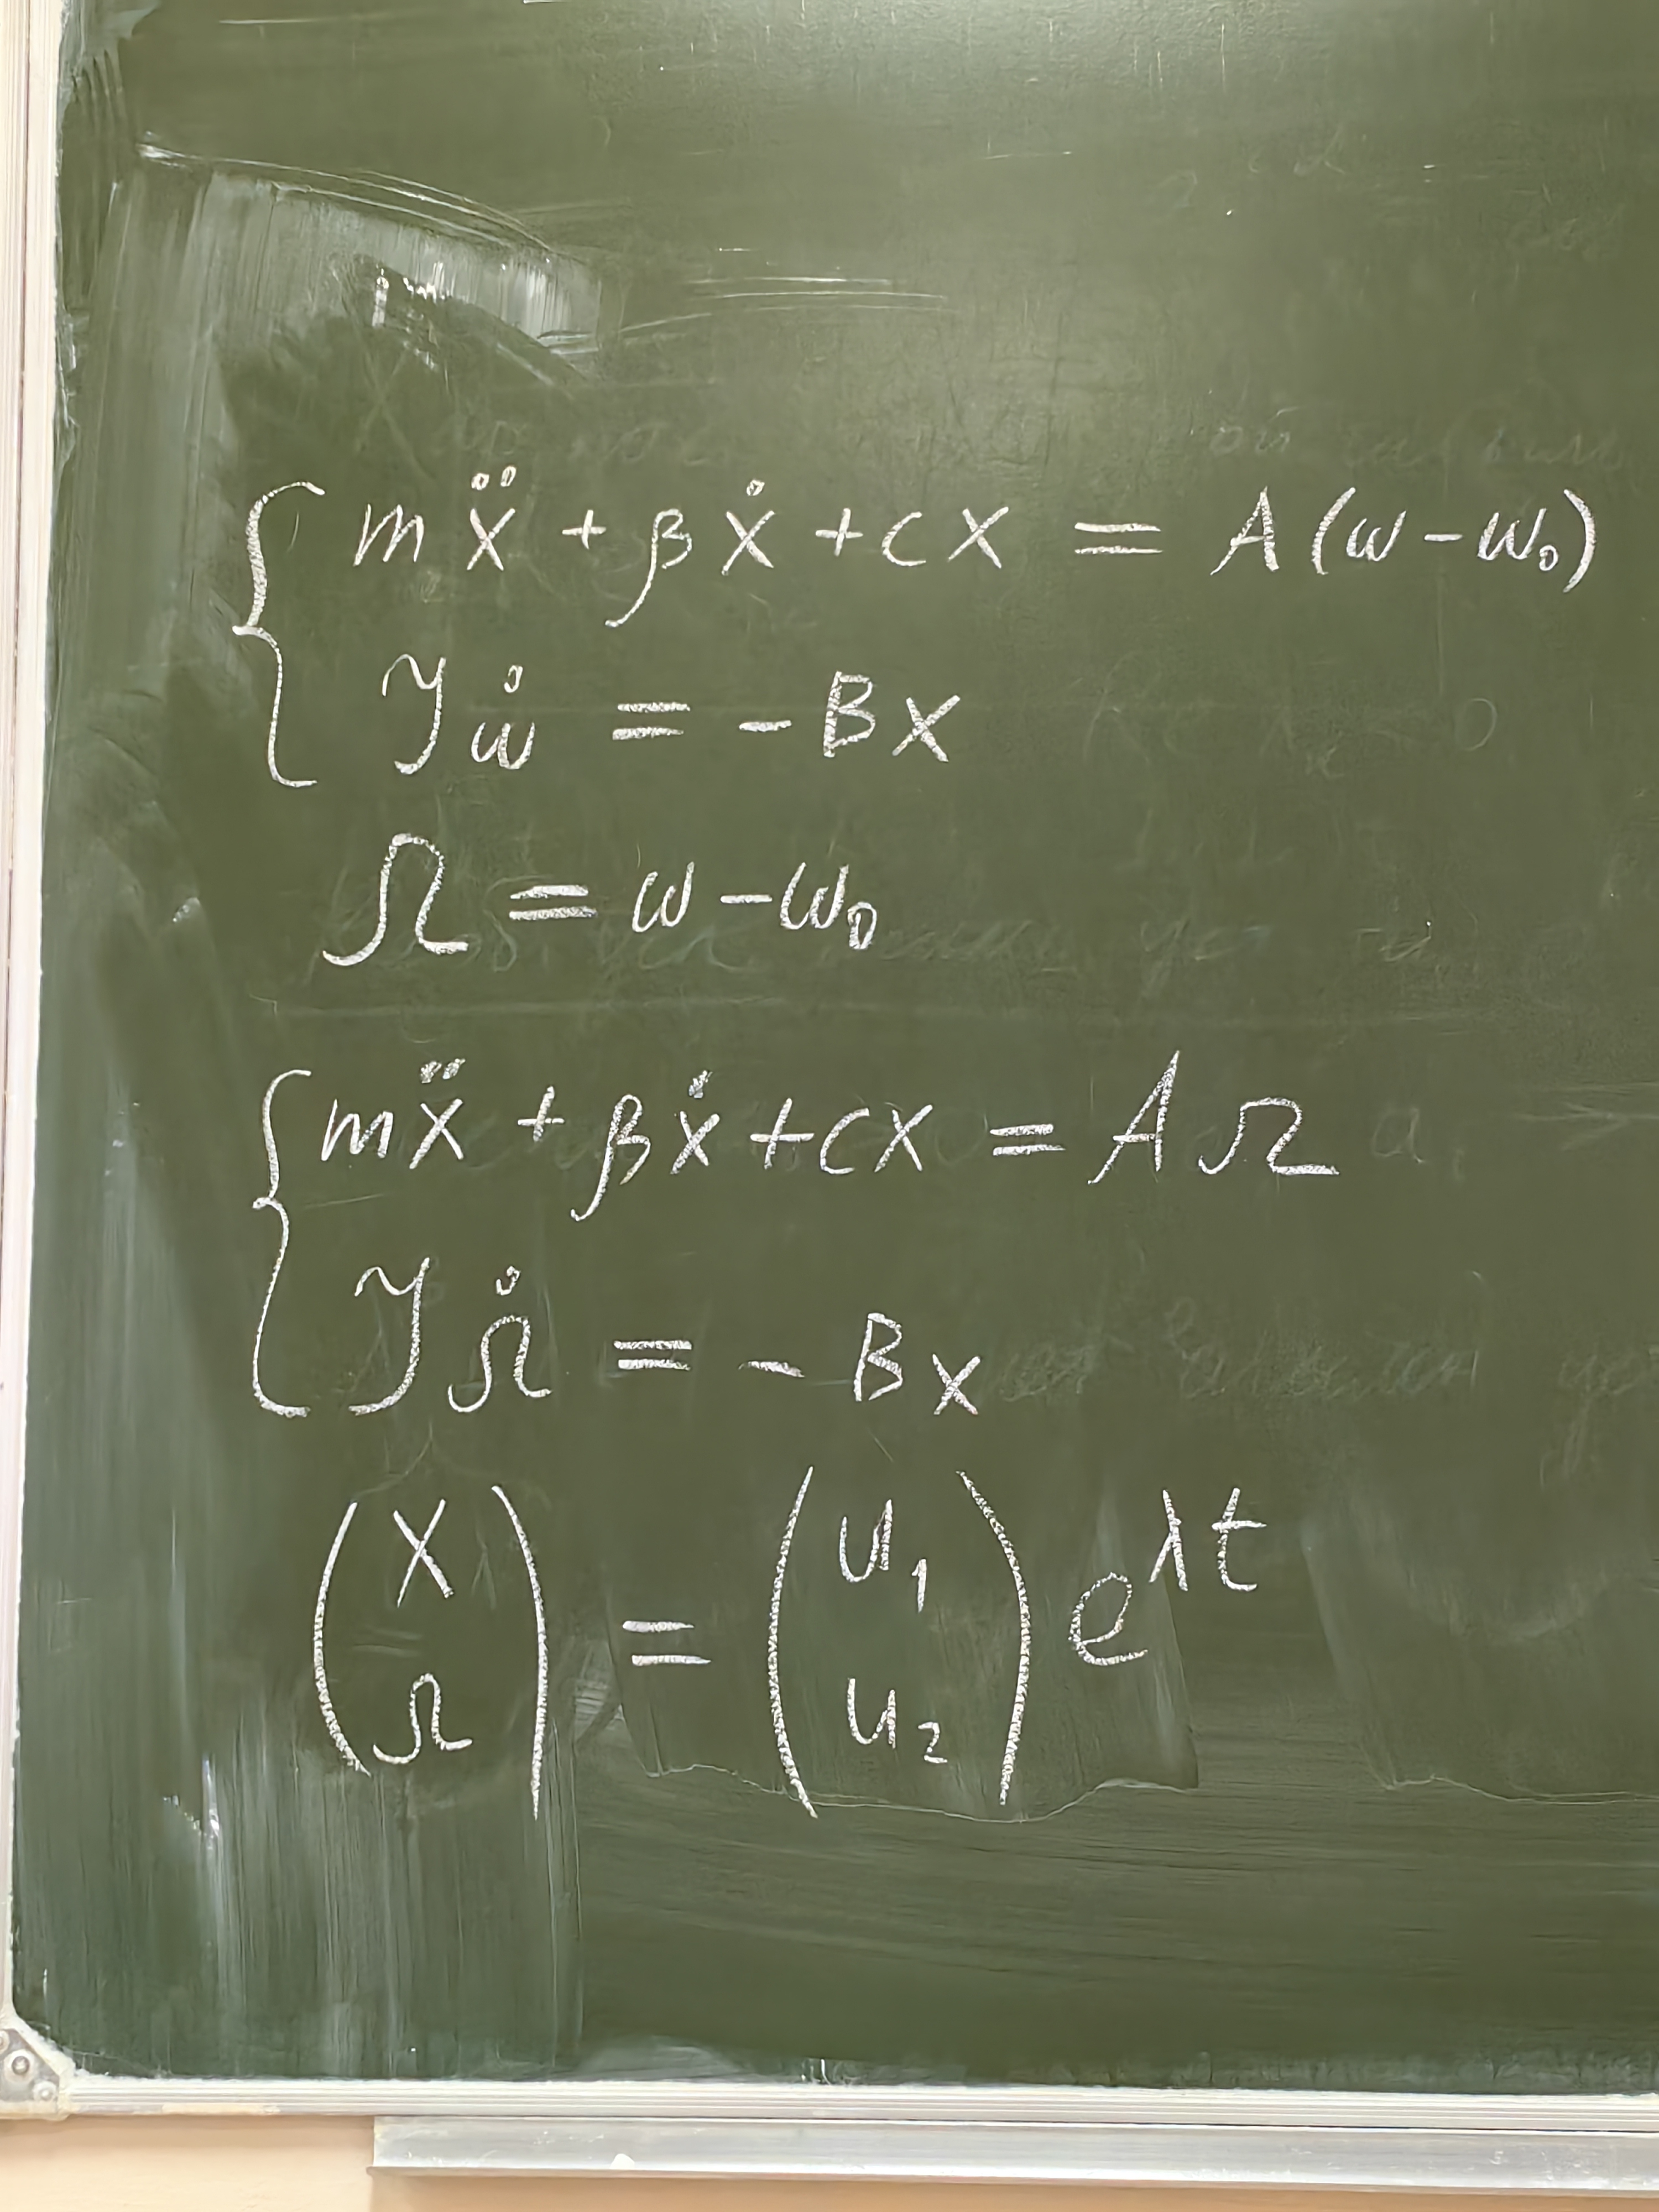 mẍ + βẋ + cx = A(ω - ω₀)
Jω̇ = - Bx
Ω = ω - ω₀
mẍ + βẋ + cx = AΩ
JΩ̇ = - Bx
(x Ω) = (u₁ u₂) e^λt